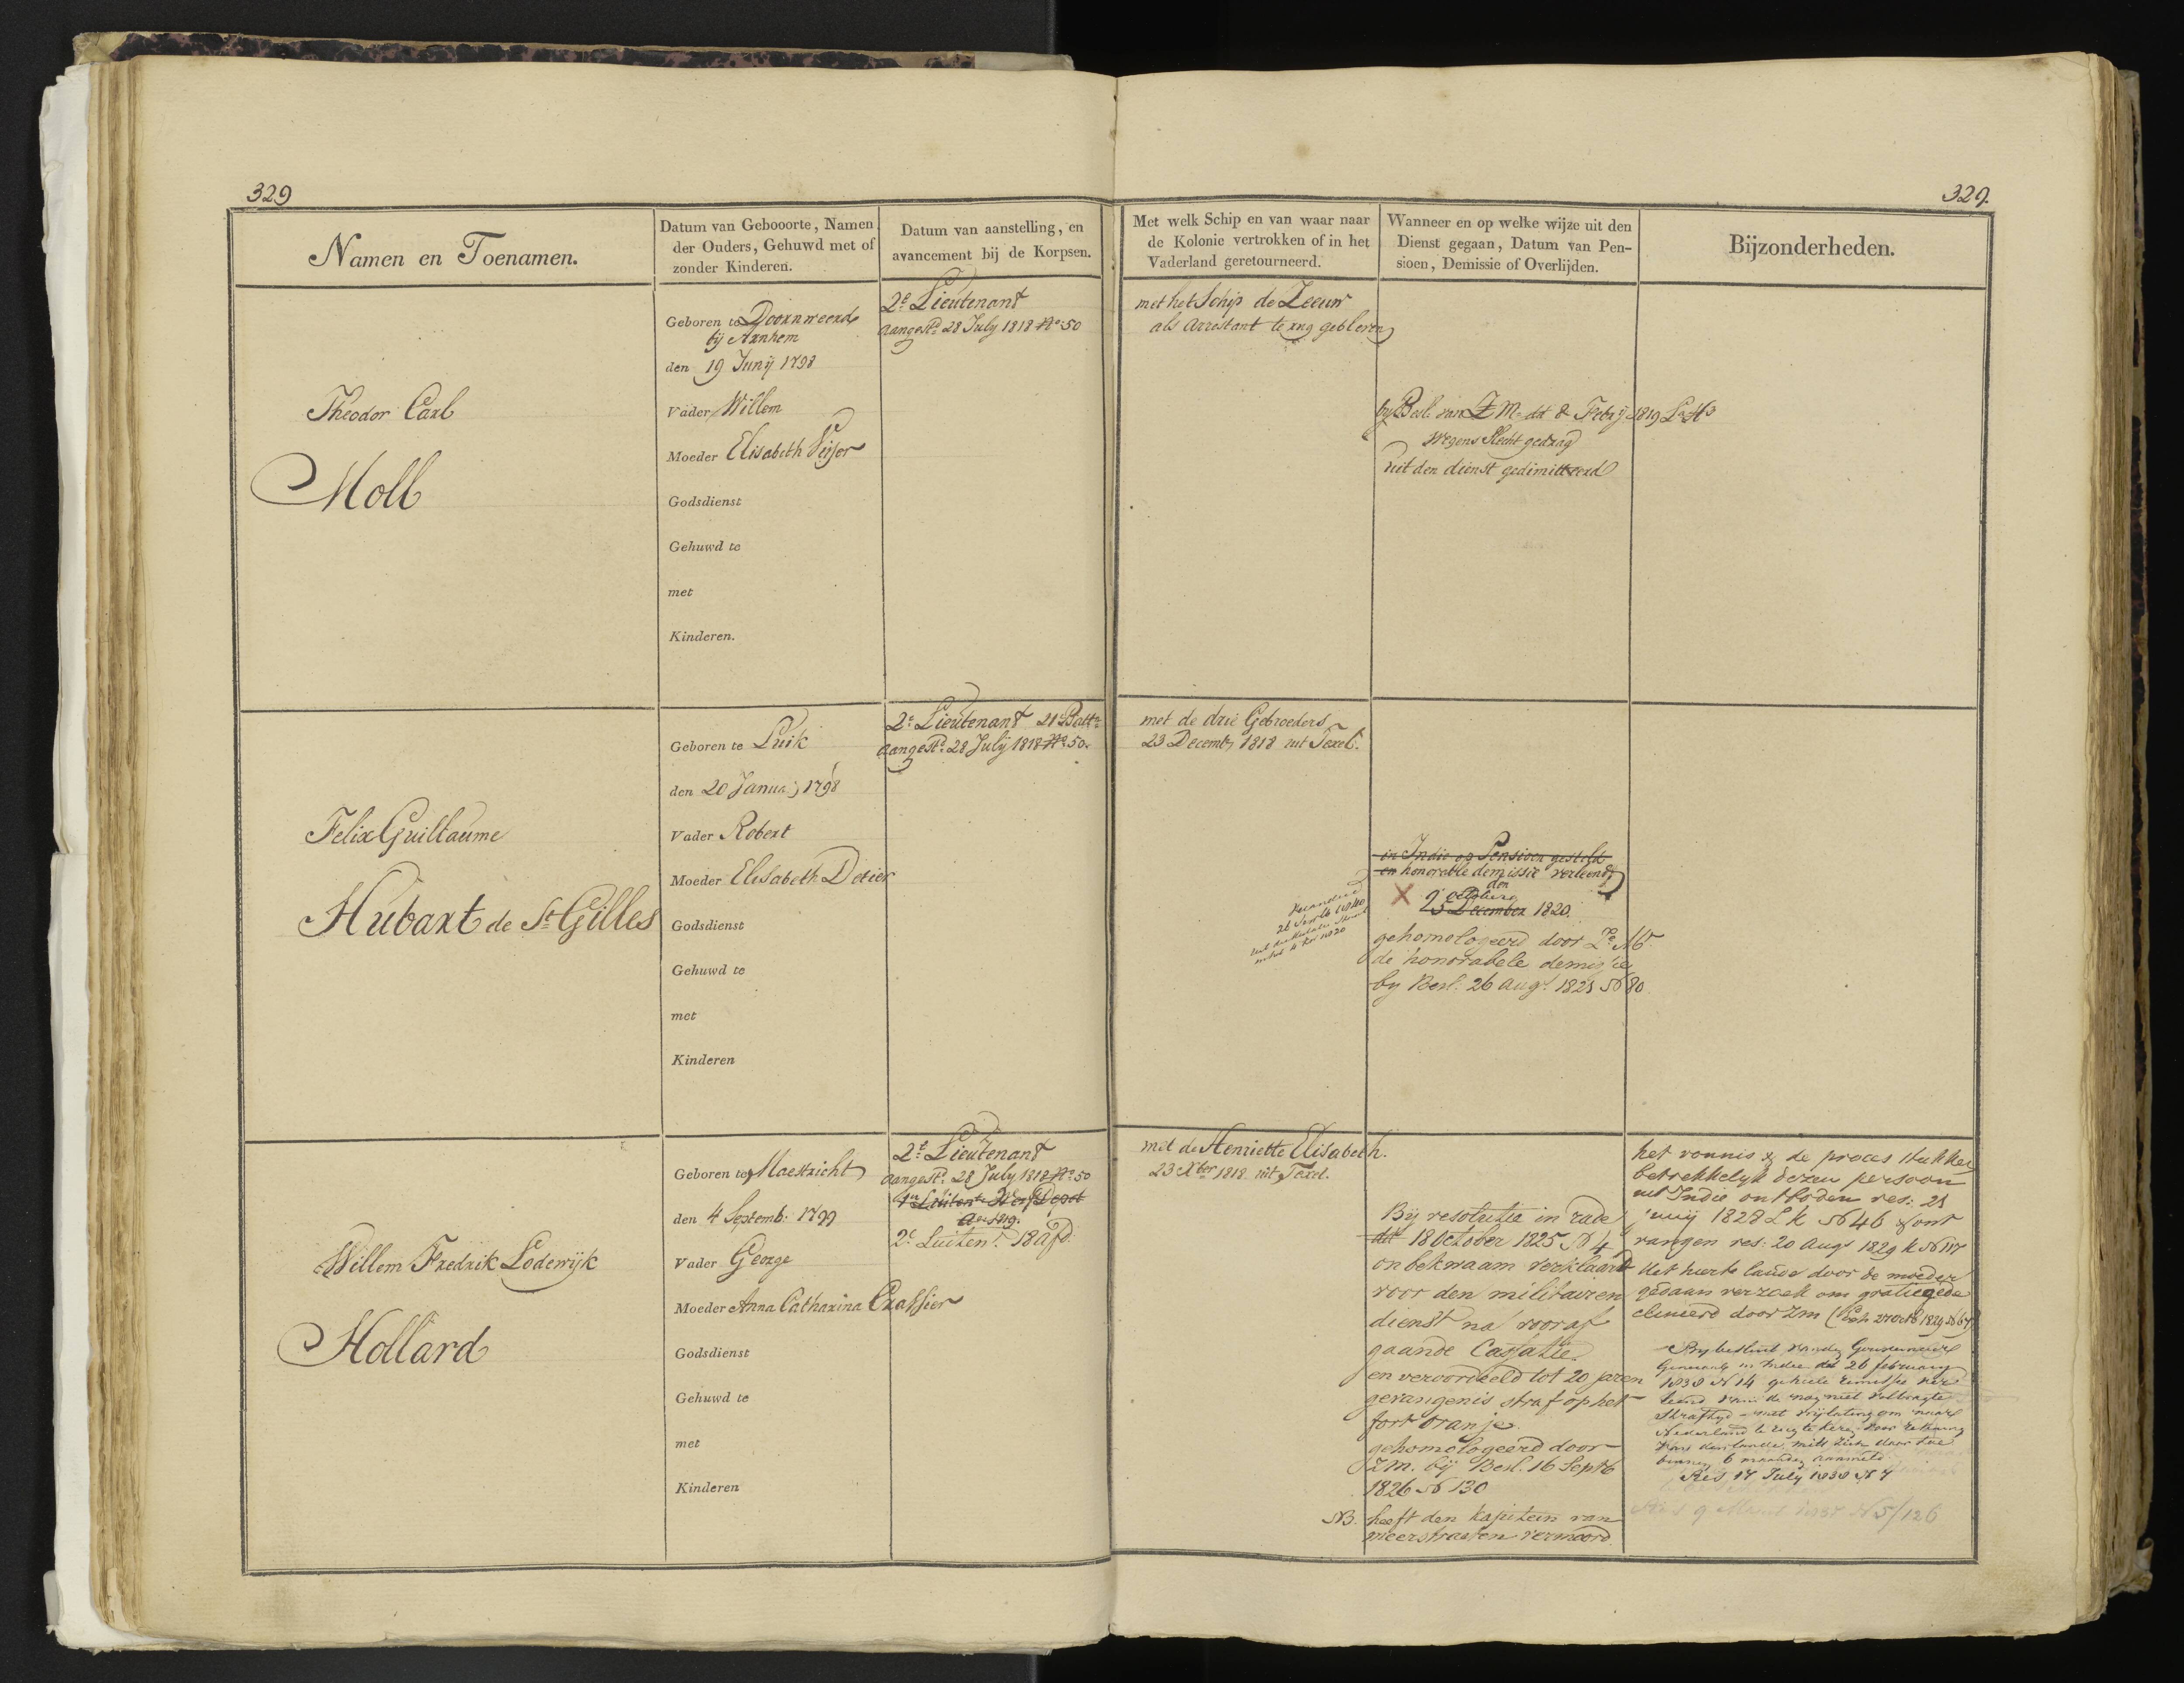 329
329.
Namen en Toenamen.
Datum van Gebooorte, Namen
der Ouders, Gehuwd met of
zonder Kinderen.
Datum van aanstelling, en
avancement bij de Korpsen.
Met welk Schip en van waar naar
de Kolonie vertrokken of in het
Vaderland geretourneerd.
Wanneer en op welke wijze uit den
Dienst gegaan, Datum van Pen-
sioen, Demissie of Overlijden.
Bijzonderheden.
Theodor Carl
Moll
Geboren te Doornweerd
bij Arnhem
den 19 Junij 1798
Vader Willem
Moeder Elisabeth
Godsdienst
Gehuwd te
met
Kinderen.
2e Lieutenant
aangestd 28 July 1818 No 50
met het Schip de Zeeuw
als Arrestant terug gebleven
by Besl. van Z M. dd 8 Febry 1819 La H3
wegens slecht gedrag
uit den dienst gedimitteerd
Felix Guillaume
Hubart de St Gilles
Geboren te Luik
den 20 Januarij 1798
Vader Robert
Moeder Elisabeth Detier
Godsdienst
Gehuwd te
met
Kinderen
2e Lieutenant 21e Battn
aangestd 28 July 1818 No 50.
met de drie Gebroeders
23 Decembr 1818 uit Texel.
in Indie op Pensioen gesteld
en honorable demissie verleend
den
X October
25 December 1820.
gehomologeerd door
de honorabele demissie
by Besl. 26 Augt 1821 No 80
Willem Fredrik Lodewijk
Hollard
Geboren te Maestricht
den 4 Septemb: 1799
Vader George
Moeder Anna Catharina Crassier
Godsdienst
Gehuwd te
met
Kinderen
2e Lieutenant
aangestd 28 July 1818 No 50
Ao 1819.
2e Luitent 18 afd.
met de Henriette Elisabeth.
23 Xber 1818 uit Texel.
Bij resolutie in rade
dd 18 October 1825 No 4
onbekwaam verklaard
voor den militairen
dienst na vooraf
gaande Cassatie
en veroordeeld tot 20 jaren
gevangenis straf op het
fort Oranje
gehomologeerd door
ZM. bij Besl. 16 Septb
1826 No 130
NB. heeft den kapitein van
meerstraeten vermoord.
het vonnis & de proces stukken
betrekkelyk dezen persoon
uit Indie ontboden res: 21
Junij 1828 L K No 46 & ont
vangen res: 20 Augs 1829 K No 117
Het hierte lande door de moeder
gedaan verzoek om gratie gede
clineerd door ZM (Besl. 27 Octb 1829 No 67)
By besluit van den Gouverneur
Generaal in Indie dd 26 february
1838 No 14 geheele remissie ver
leend van de nog niet volbragte
straftyd – met vrijlating om naar
Nederland terug te keren voor rekening
van den lande, mits zich daar toe
binnen 6 maanden aanmeld.
Res 17 July 1838 No 7